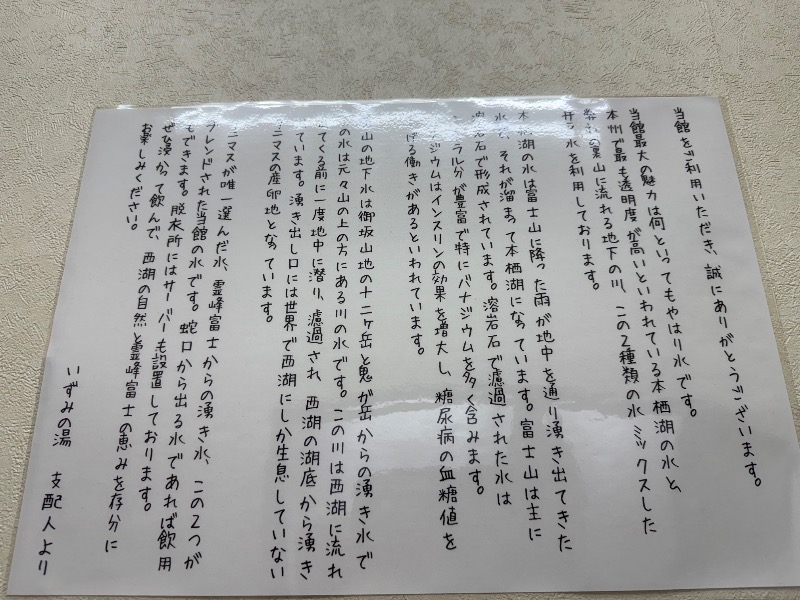 当館をご利用いただき、誠にありがとうございます。
当館最大の魅力は何といってもやはり水です。
本州で最も透明度が高いといわれている本栖湖の水と、
裏山に流れる地下の川、この2種類の水ミックスした
水を利用しております。
栖湖の水は富士山に降った雨が地中を通り湧き出てきた
水で、それが溜まって本栖湖になっています。富士山は主に
溶岩石で形成されています。溶岩石で濾過された水は
ラル分が豊富で特にバナジウムを多く含みます。
ジウムはインスリンの効果を増大し、糖尿病の血糖値を
げる働きがあるといわれています。
山の地下水は御坂山地の十二ヶ岳と鬼が岳からの湧き水で
の水は元々山の上の方にある川の水です。この川は西湖に流れ
てくる前に一度地中に潜り、濾過され、西湖の湖底から湧き
ています。湧き出し口には世界で西湖にしか生息していない
ニマスの産卵地となっています。
ニマスが唯一選んだ水、霊峰富士からの湧き水、この2つが
ブレンドされた当館の水です。蛇口から出る水であれば飲用
もできます。脱衣所にはサーバーも設置しております。
ぜひ浸かって飲んで、西湖の自然と霊峰富士の恵みを存分に
お楽しみください。
いずみの湯 支配人より